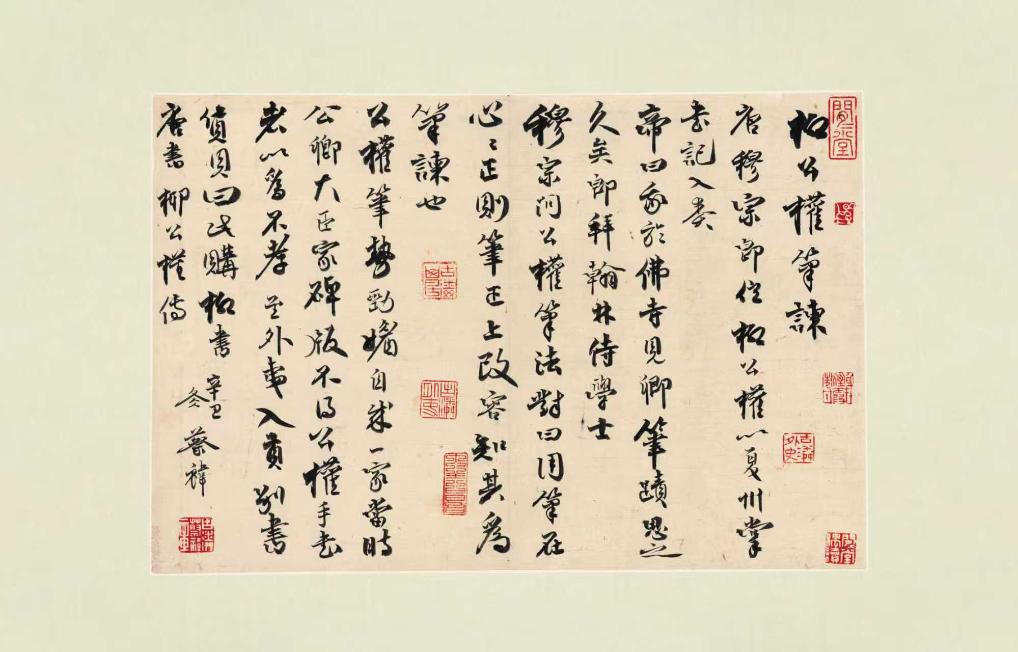 柳公權筆諫
唐穆宗即位柳公權以夏州掌
書記入奏
帝曰我於佛寺見卿筆蹟思之
久矣即拜翰林侍學士
穆宗問公權筆法對曰用筆在
心心正則筆正上改容知其為
筆諫也
公權筆勢勁媚自成一家當時
公卿大臣家碑版不得公權手書
者以為不孝 外夷入貢別書
貨貝曰此購柳書
唐書柳公權傳
辛丑
冬 蔡禕